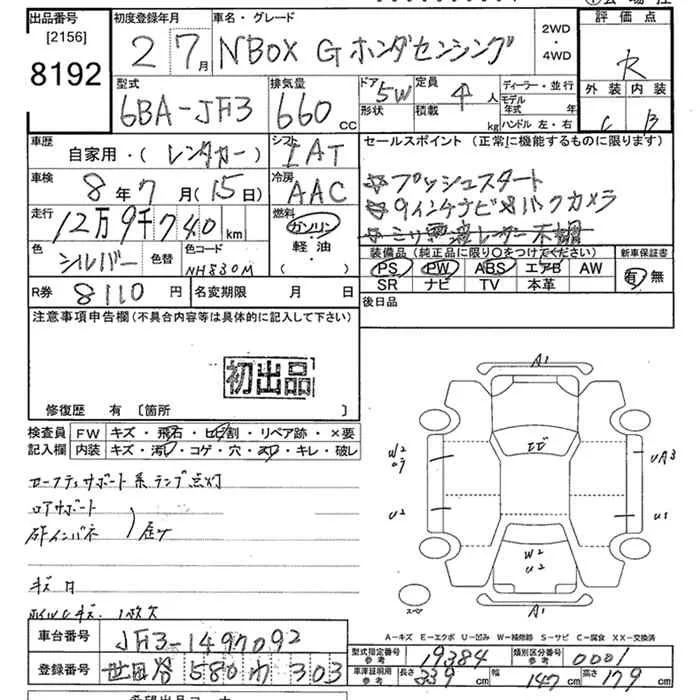 出品番号 初度登録年月 車名・グレード 評価点
[2156]
8192
2 7月 N BOX G ホンダセンシング 2WD ・ 4WD
R
型式 排気量 ドア 定員 ディーラー・並行 外装 内装
6BA-JF3 660 CC 5W 4 人 モデル年式 年
形状 積載 kg ハンドル 左・右 C B
車歴 自家用・(レンタカー) シフト IAT
セールスポイント (正常に機能するものに限ります)
車検 8年7月(15日) 冷房 AAC
☆プッシュスタート
☆9インチナビ ☆バックカメラ
走行 12万9千740 km 燃料 ガソリン・軽油・( )
色 シルバー 色替 色コード NH830M
装備品 (純正品に限り〇をつけてください) 新車保証書
PS PW ABS エアB AW 有・無
SR ナビ TV 本革
R券 8110 円 名変期限 月 日
後日品
注意事項申告欄(不具合内容等は具体的に記入して下さい)
初出品
修復歴 有 [箇所 ]
検査員記入欄 FW キズ・飛石・ヒビ割・リペア跡・×要
内装 キズ・汚れ・コゲ・穴・スレ・キレ・破レ
セーフティサポート系ランプ点灯
ロアサポート
キズ 凹
ホイルCキズ 1枚欠
A1
エビ
W2
U2
UA3
U1
W2
U2
A1
スペア
A-キズ E-エクボ U-凹み W-補修跡 S-サビ C-腐食 XX-交換済
車台番号 JF3-1497092
登録番号 世田谷 580 わ 303
型式指定番号 参考 19384 類別区分番号 参考 0001
車庫証明用 参考 長さ 339 cm 幅 147 cm 高さ 179 cm